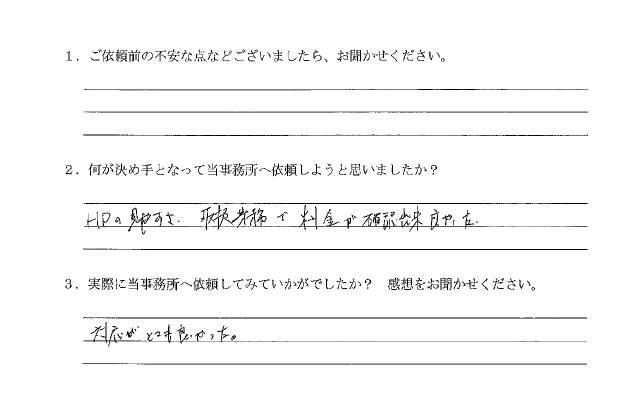 １．ご依頼前の不安な点などございましたら、お聞かせください。
２．何が決め手となって当事務所へ依頼しようと思いましたか？
HPの見やすさ．取扱業務で料金が確認出来良かった．
３．実際に当事務所へ依頼してみていかがでしたか？　感想をお聞かせください。
対応がとても良かった。